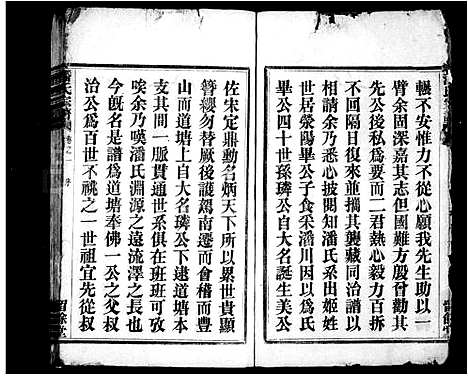 輾不安惟力不從心願我先生助以一
臂余固深嘉其志但國難方殷曾勸其
先公後私爲要而二君熱心毅力百折
不回隔日復來並攜其襲藏同治譜以
相示余盥誦之披閱知潘氏系出姬姓
世居滎陽畢公子食采潘川因以爲氏
畢公四十世孫璘公自大名誕生美公
佐宋定鼎勳名炳天下所以累世貴顯
簪纓勿替厥後護蹕南遷而會稽而豐
山而道塘上自大名璘公下逮道塘本
支其間一脈貫通世系俱在班班可攷
唉余乃嘆潘氏淵源之遠流澤之長也
今旣名是譜爲道塘奉佛一公之父叔
治公爲百世不祧之一世祖宜先從叔